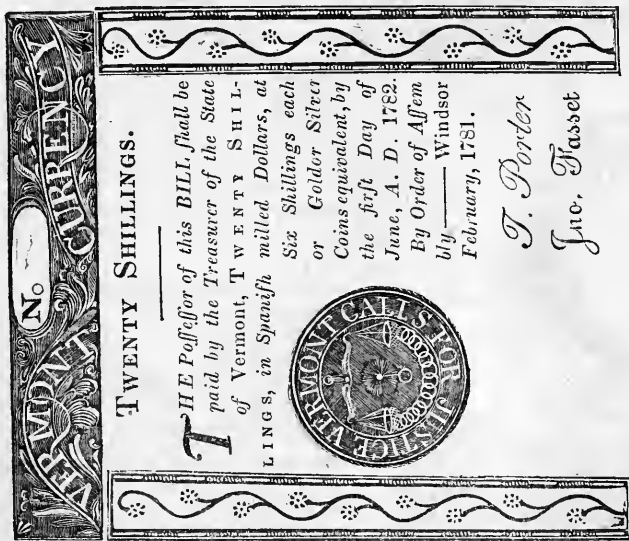 VERMONT CURRENCY
No
TWENTY SHILLINGS.
THE Poſſeſſor of this BILL ſhall be
paid by the Treaſurer of the State
of Vermont, TWENTY SHIL-
LINGS, in Spaniſh milled Dollars, at
Six Shillings each
or Goldor Silver
Coins equivalent, by
the firſt Day of
June, A. D. 1782.
By Order of Aſſem
bly —— Windsor
February, 1781.
VERMONT CALLS FOR JUSTICE
T. Porter
Jno. Fasset